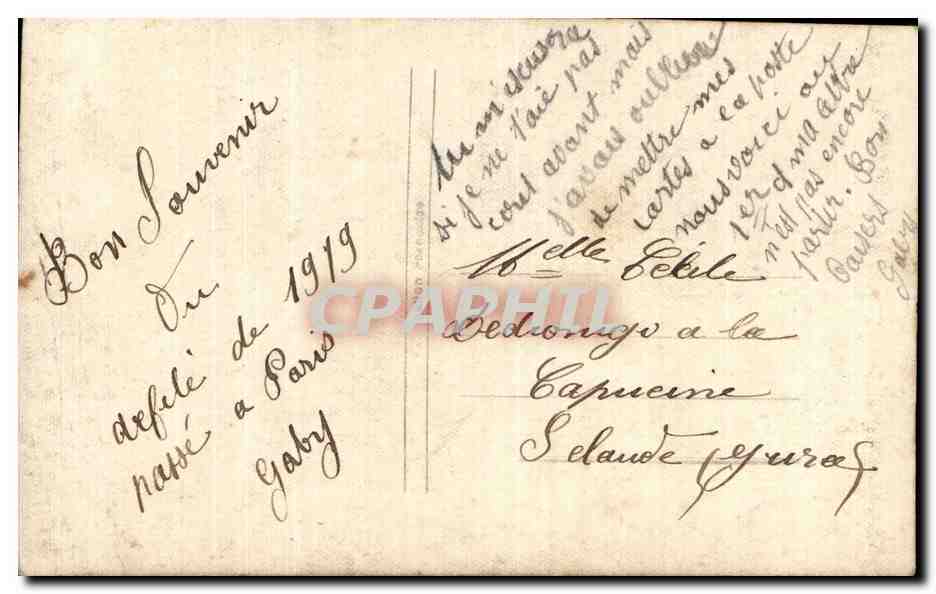 Bon Souvenir
Du
defilé de 1919
passé a Paris
Gaby
tu m'escusera
si je ne t'aie pas
cont avant mais
j'avais oubliée
de mettre mes
cartes a la poste
nous voici au
1er d ma lettre
n'est pas encore
partir. Bon
Baisers
Gaby
Melle Cécile
a la
Capucine
St Claude (Jura)
CPAPHIL